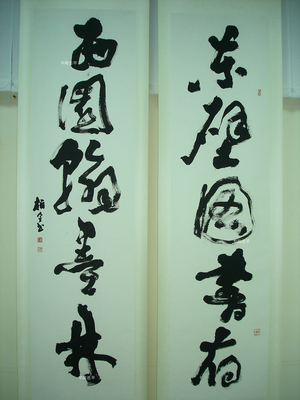 东壁图书府
西园翰墨林